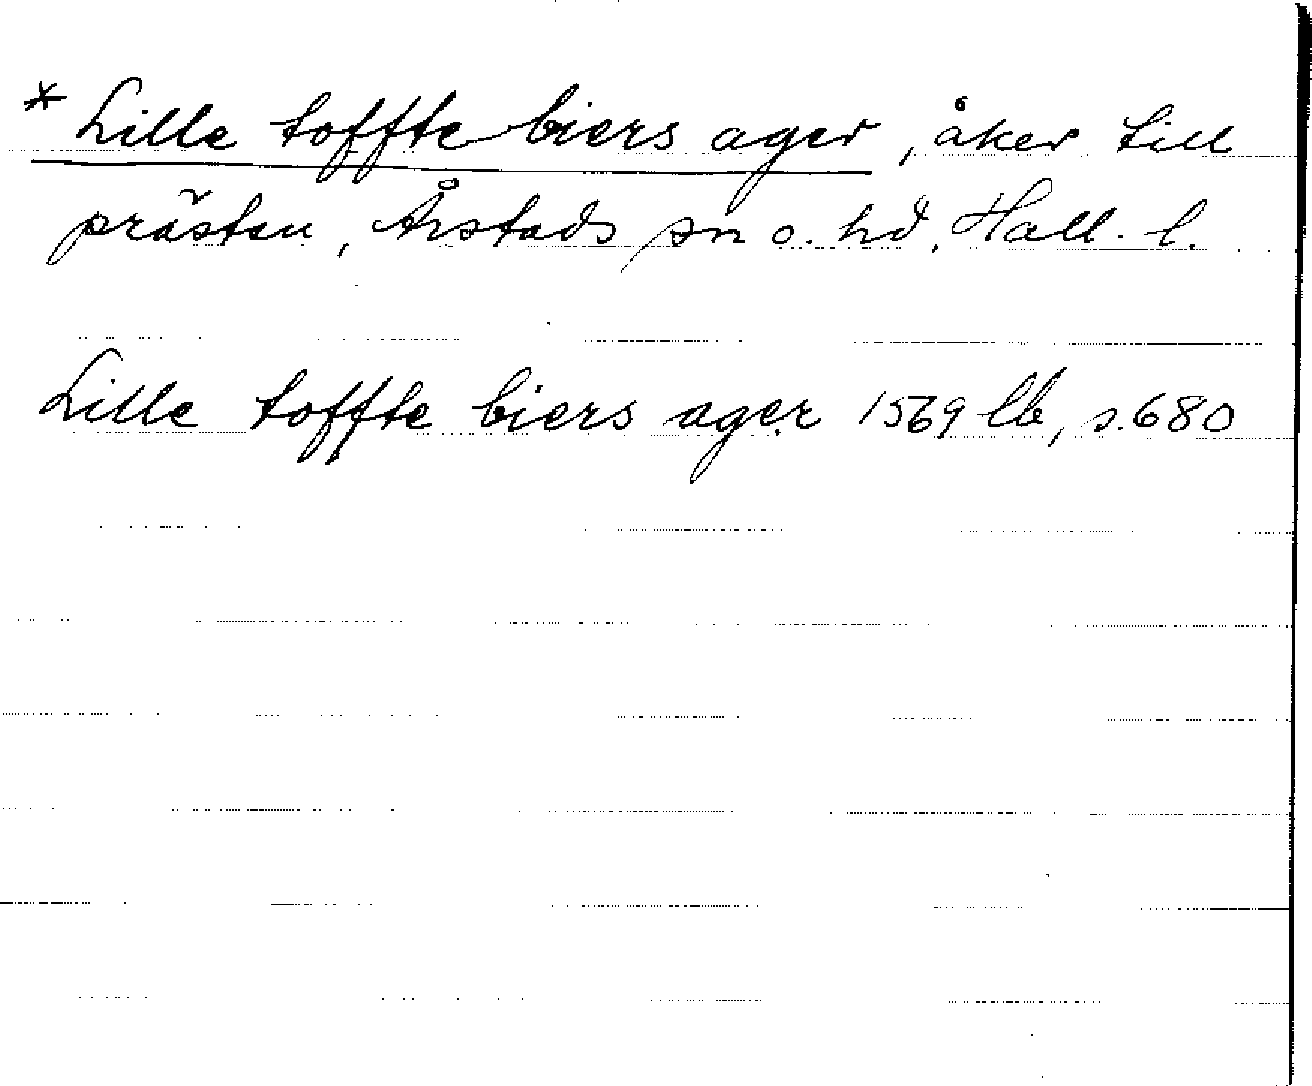 * Lille toffte biers ager, åker till
prästen, Årstads sn o. hd, Hall. l.
Lille toffte biers ager 1569 lb, s. 680